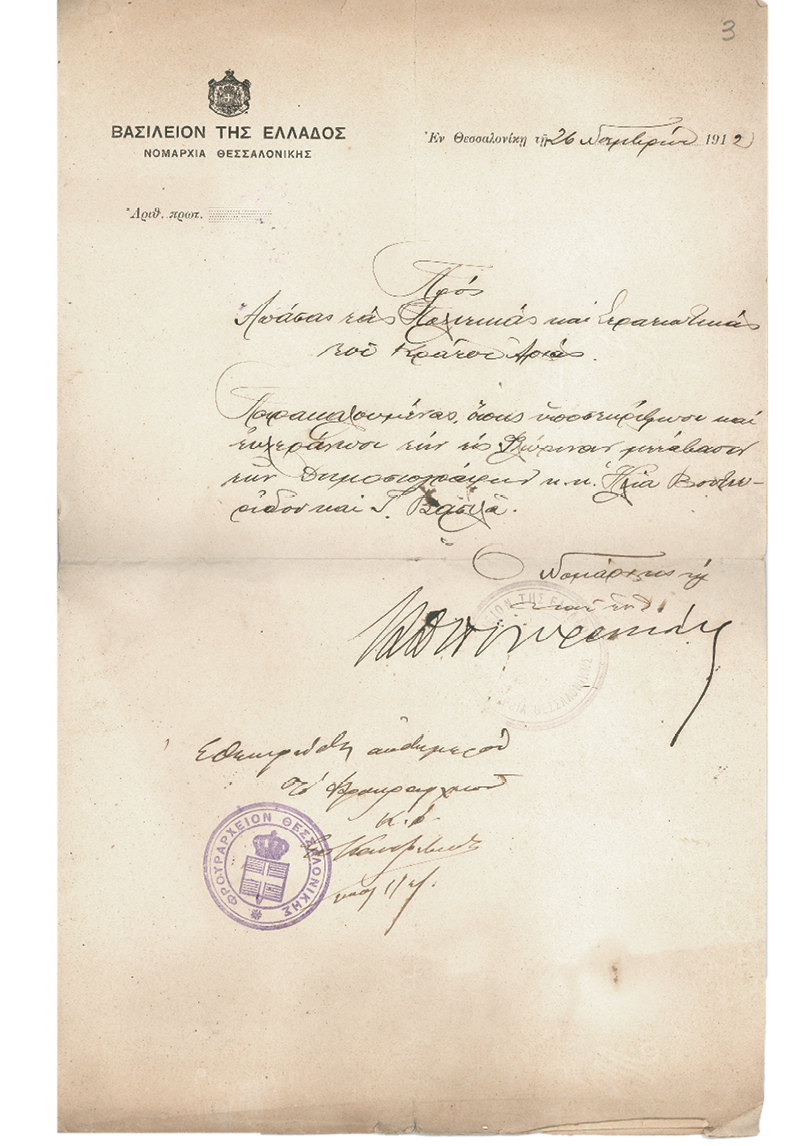 3
ΒΑΣΙΛΕΙΟΝ ΤΗΣ ΕΛΛΑΔΟΣ
ΝΟΜΑΡΧΙΑ ΘΕΣΣΑΛΟΝΙΚΗΣ
Ἐν Θεσσαλονίκῃ τῇ 26 Νοεμβρίου 1912
Ἀριθ. πρωτ.
Πρός
Ἁπάσας τὰς Πολιτικάς καί Στρατιωτικάς
τοῦ Κράτους Ἀρχάς.
Παρακαλουμένας, ὅπως ὑποστηρίξωσι καί
εὐχεράνωσι τήν εἰς Φλώριναν μετάβασιν
τῶν Δημοσιογράφων κ.κ. Ἠλία Βουτιε-
ρίδου καί Γ. Βασιλᾶ.
Ὁ Νομάρχης
ΘΕΣΣΑΛΟΝΙΚΗΣ
Ἐθεωρήθη αὐθημερόν
Φρουραρχεῖον
ΦΡΟΥΡΑΡΧΕΙΟΝ ΘΕΣΣΑΛΟΝΙΚΗΣ